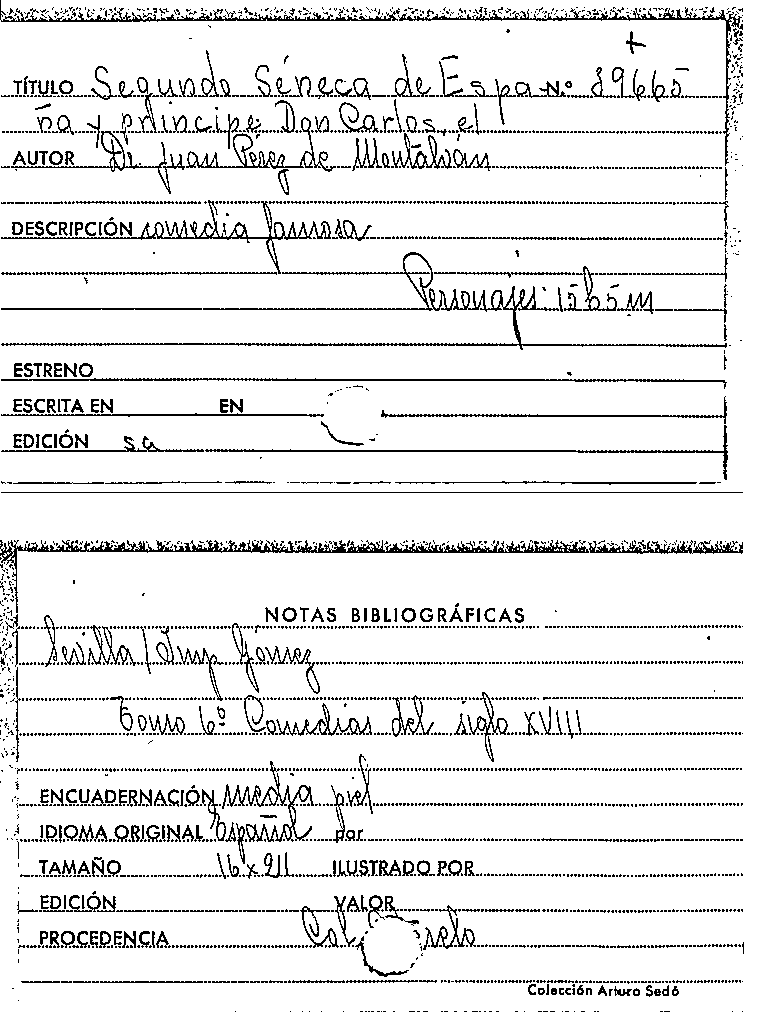 +
TÍTULO Segundo Séneca de Espa N.º 39665
ña y príncipe Don Carlos, el
AUTOR Dr. Juan Pérez de Montalván
DESCRIPCIÓN comedia famosa
Personajes: 15 h 5 m
ESTRENO
ESCRITA EN EN
EDICIÓN s.a
NOTAS BIBLIOGRÁFICAS
Sevilla / Imp Gómez
Tomo 6º Comedias del siglo XVIII
ENCUADERNACIÓN media piel
IDIOMA ORIGINAL Español por
TAMAÑO 16 x 211 ILUSTRADO POR
EDICIÓN VALOR
PROCEDENCIA Col
Colección Arturo Sedó